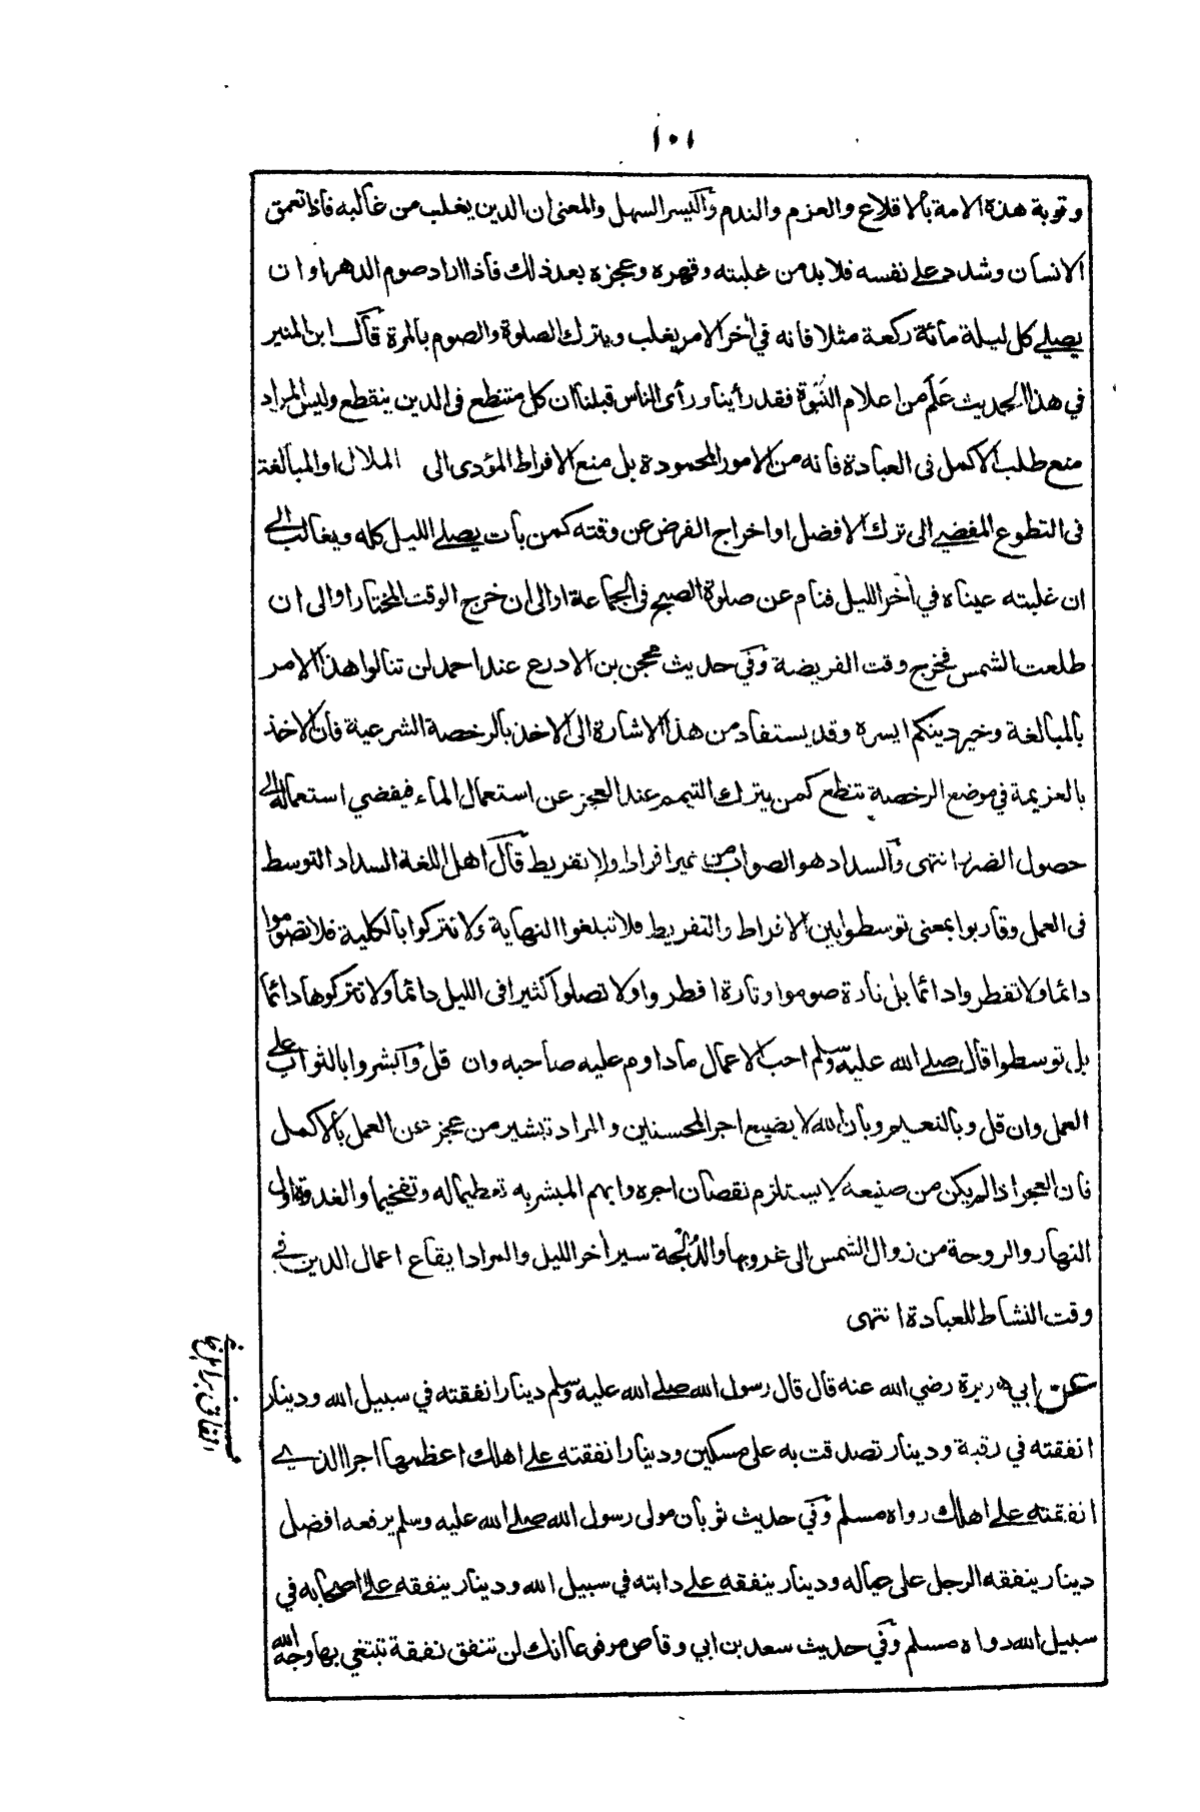 ١٠١
وتوبة هذه الامة بالاقلاع والعزم والندم واليسر السهل والمعنى ان الدين يغلب من غالبه فاذا تعمق
الانسان وشدد على نفسه فلا بد من غلبته وقهره وعجزه بعد ذلك فاذا اراد صوم الدهر او ان
يصلى كل ليلة مائة ركعة مثلا فانه في اخر الامر يغلب ويترك الصلوة والصوم بالمرة قال ابن المنير
في هذا الحديث عَلَم من اعلام النبوة فقد رأينا ورأى الناس قبلنا ان كل متنطع فى الدين ينقطع وليس المراد
منع طلب الاكمل فى العبادة فانه من الامور المحمودة بل منع الافراط المؤدى الى الملال او المبالغة
فى التطوع المفضى الى ترك الافضل او اخراج الفرض عن وقته كمن بات يصلى الليل كله ويغالب الى
ان غلبته عيناه في اخر الليل فنام عن صلوة الصبح فى الجماعة او الى ان خرج الوقت المختار او الى ان
طلعت الشمس فخرج وقت الفريضة وفي حديث محجن بن الادرع عند احمد لن تنالوا هذا الامر
بالمبالغة وخير دينكم ايسره وقد يستفاد من هذا الاشارة الى الاخذ بالرخصة الشرعية فان الاخذ
بالعزيمة في موضع الرخصة تنطع كمن يترك التيمم عند العجز عن استعمال الماء فيفضي استعماله الى
حصول الضرر انتهى والسداد هو الصواب من غير افراط ولا تفريط قال اهل اللغة السداد التوسط
فى العمل وقاربوا بمعنى توسطوا بين الافراط والتفريط فلا تبلغوا النهاية ولا تتركوا بالكلية فلا تصوموا
دائما ولا تفطروا دائما بل تارة صوموا وتارة افطروا ولا تصلوا كثيرا فى الليل دائما ولا تتركوها دائما
بل توسطوا قال صلى الله عليه وسلم احب الاعمال ما داوم عليه صاحبه وان قل وابشروا بالثواب على
العمل وان قل وبالنعيم وبان الله لا يضيع اجر المحسنين والمراد تبشير من عجز عن العمل بالاكمل
فان العجز اذا لم يكن من صنيعه لا يستلزم نقصان اجره وابهم المبشر به تعظيما له وتفخيما والغدوة اول
النهار والروحة من زوال الشمس الى غروبها والدُلْجة سير اخر الليل والمراد ايقاع اعمال الدين في
وقت النشاط للعبادة انتهى
عن ابي هريرة رضي الله عنه قال قال رسول الله صلى الله عليه وسلم دينار انفقته في سبيل الله ودينار
انفقته في رقبة ودينار تصدقت به على مسكين ودينار انفقته على اهلك اعظمها اجرا الذي
انفقته على اهلك رواه مسلم وفي حديث ثوبان مولى رسول الله صلى الله عليه وسلم يرفعه افضل
دينار ينفقه الرجل على عياله ودينار ينفقه على دابته في سبيل الله ودينار ينفقه على اصحابه في
سبيل الله رواه مسلم وفي حديث سعد بن ابي وقاص مرفوعا انك لن تنفق نفقة تبتغي بها وجه الله